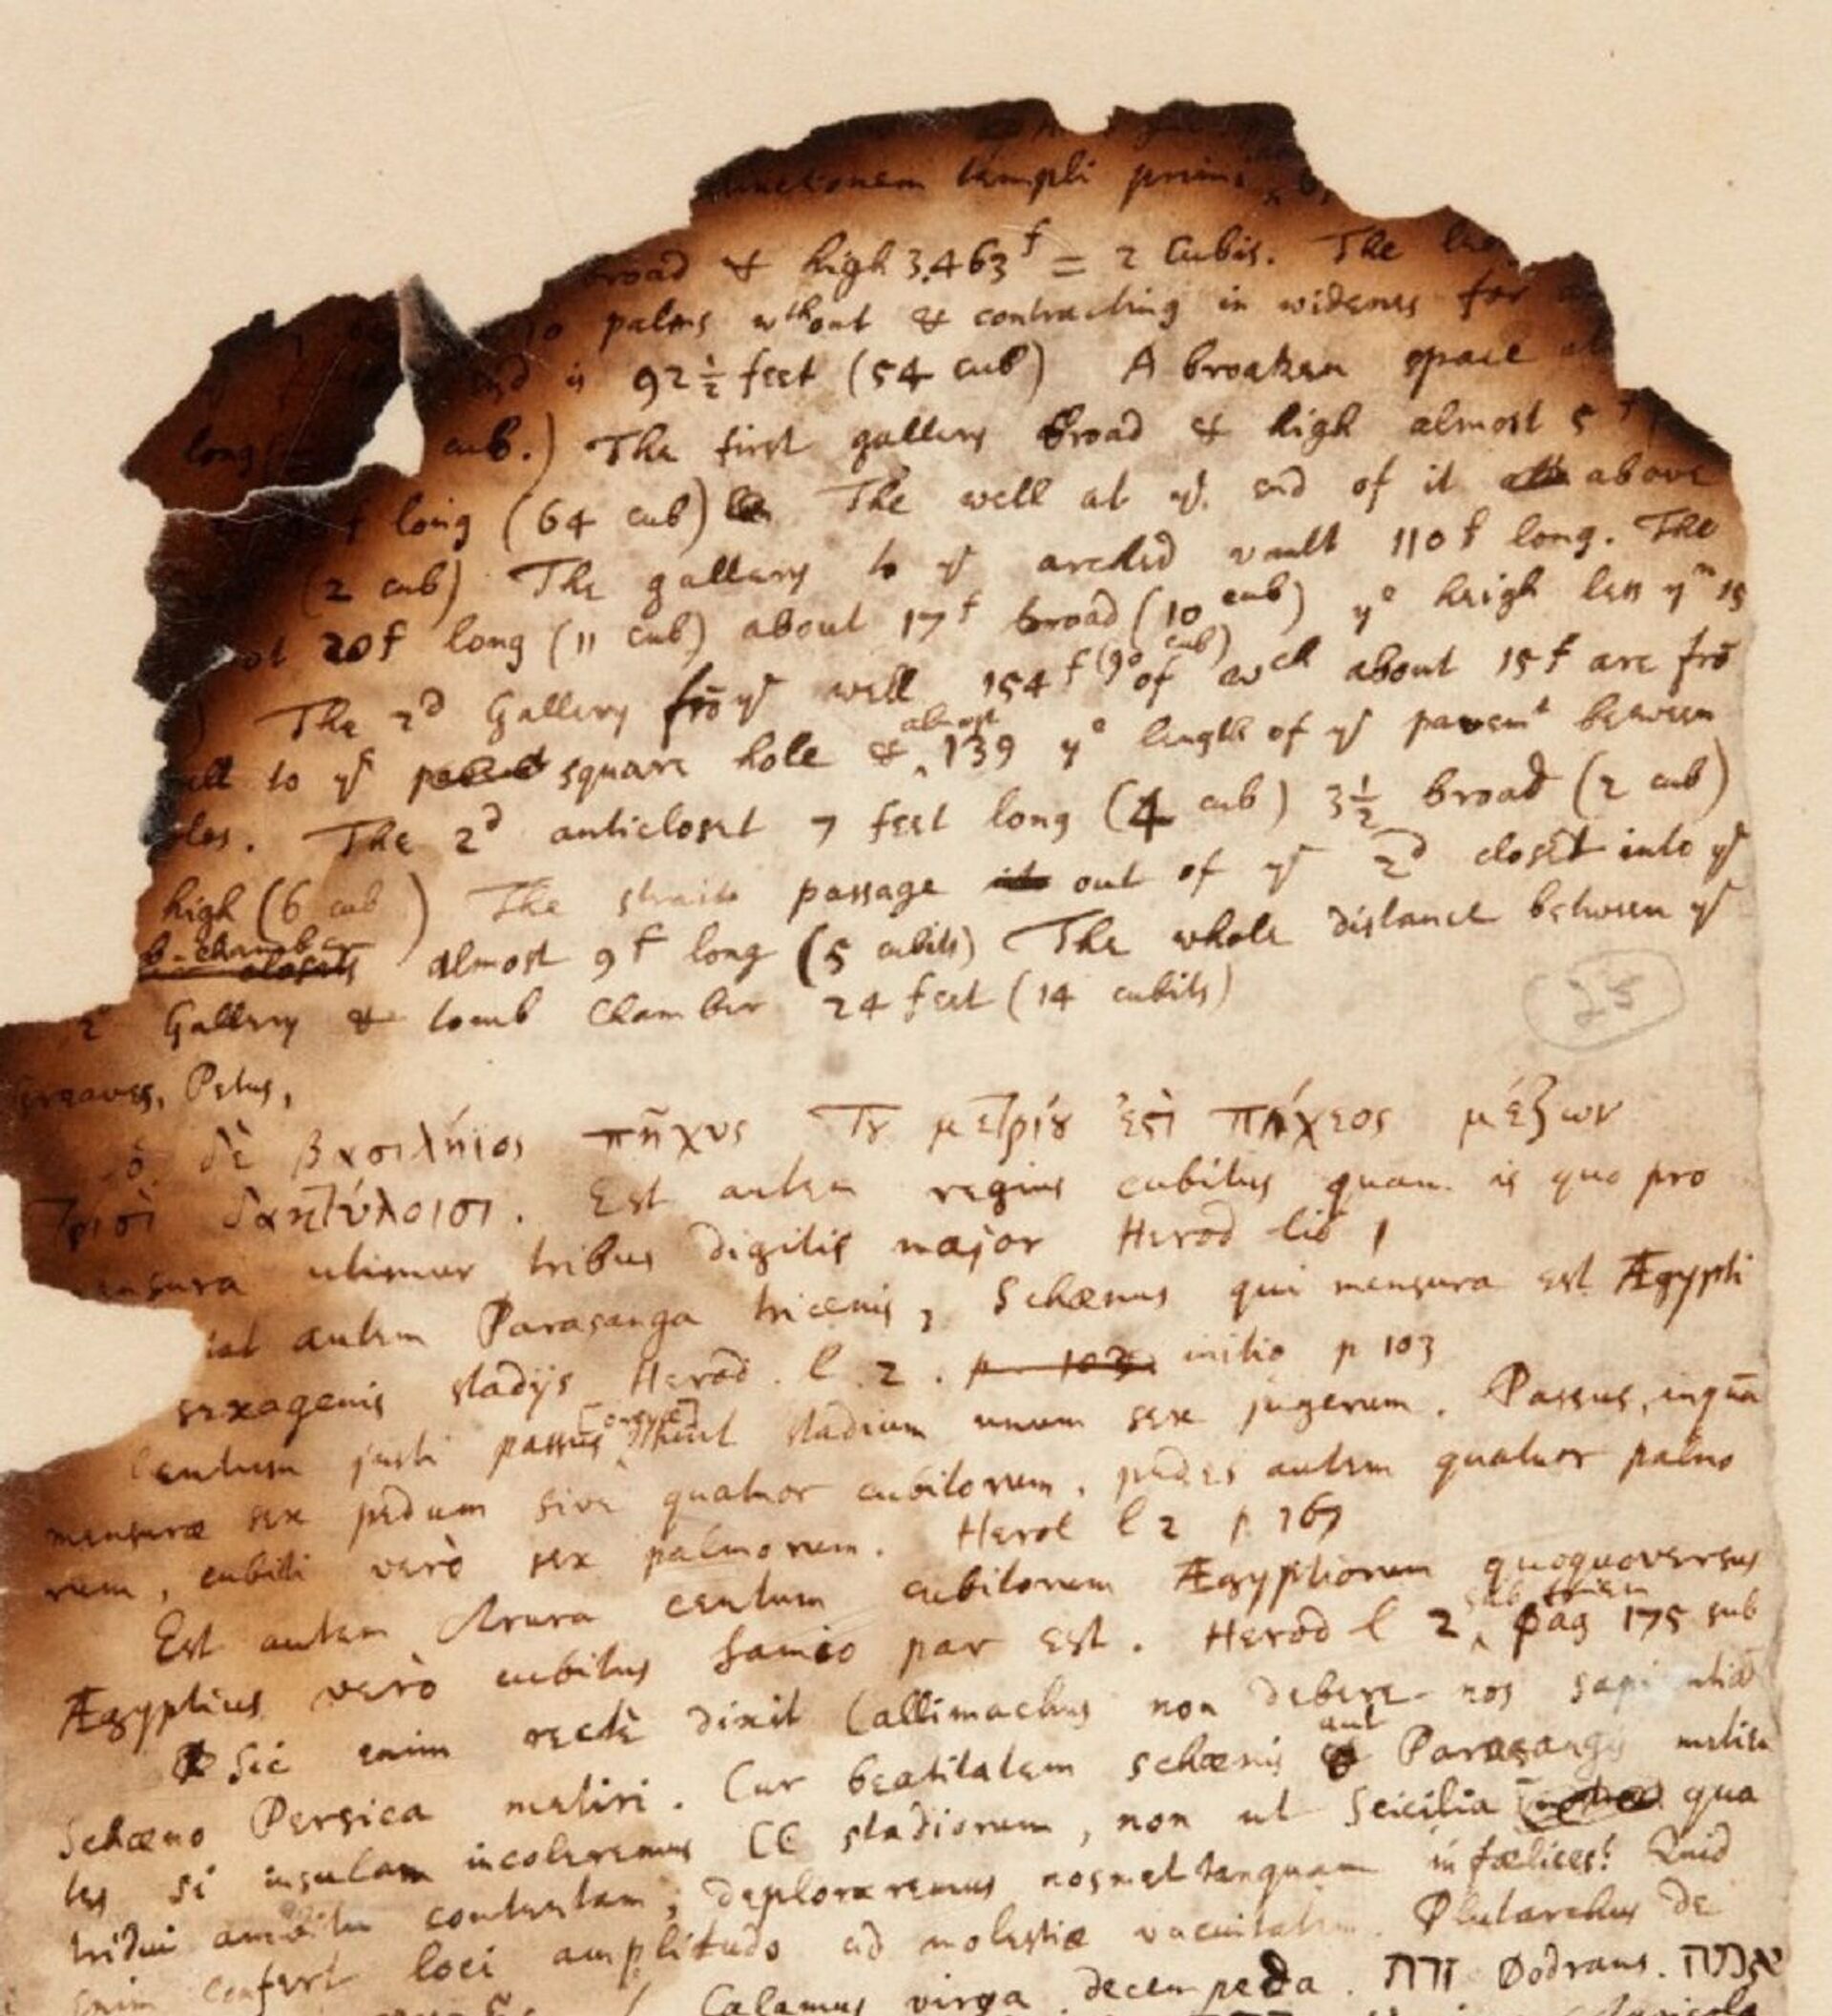 templi primi
broad & high 3.463f = 2 Cubis. The
10 palms wthout & contracting in widenes for
is 92 1/2 feet (54 cub) A broaken space
long cub.) The first gallery broad & high almost 5
f long (64 cub) The well at ye. end of it above
(2 cub) The gallery to ye arched vault 110 f long. The
20f long (11 cub) about 17f broad (10 cub) ye heigh less yn 15
) The 2d Gallery frō ye well 154f (90 cub) of wch about 15f are frō
to ye square hole & almost 139 ye length of ye pavemt between
The 2d anticloset 7 feet long (4 cub) 3 1/2 broad (2 cub)
high (6 cub) The strait passage out of ye 2d closet into ye
b-chamber closets almost 9f long (5 cubits) The whole distance between ye
2 Gallery & tomb Chamber 24 feet (14 cubits)
25
Greaves, Petus,
ὁ δὲ βασιλήϊος πῆχυς τȣ μετρίȣ ἐϛὶ πήχεος μέζων
τρισὶ δακτύλοισι. Est autem regius cubitus quam is quo pro
mensura utimur tribus digitis major Herod lib 1
autem Parasanga tricenis, Schænus qui mensura est Ægypti
sexagenis stadijs Herod. l. 2. p 103 initio p 103
Centum justi passus [orgyæ] stadium unum sex jugerum. Passus, inquā
mensuræ sex pedum sive quatuor cubitorum, pedes autem quatuor palmo
rum, cubiti verò sex palmorum. Herod l 2 p. 167
Est autem Arura centum cubitorum Ægyptiorum quoquoversus
Ægyptius verò cubitus Samio par est. Herod l 2, pag 175 sub
Sic enim rectè dixit Callimachus non debere nos sapientiā
Schæno Persica metiri. Cur beatitatem schænis aut Parasangis metien
tes si insulam incoleremus CC stadiorum, non ut Seicilia qua
tridui ambitu contentam, deploraremus nosmet tanquam infœlices? Quid
enim confert loci amplitudo ad molestiæ vacuitatem. Plutarchus de
Calamus virga decempeda. זרת Dodrans. אמה